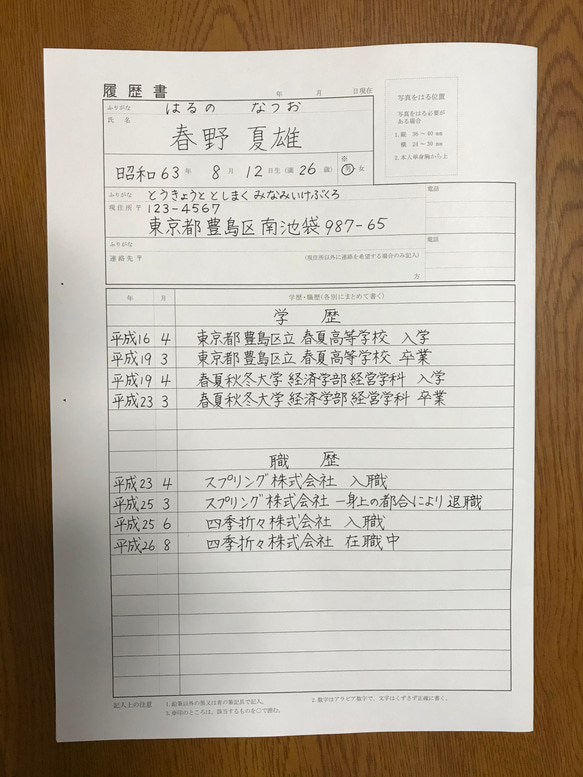 履歴書
年 月 日現在
写真をはる位置
写真をはる必要が
ある場合
1. 縦 36～40 mm
横 24～30 mm
2. 本人単身胸から上
ふりがな はるの なつお
氏名
春野 夏雄
昭和63年 8月 12日生(満26歳) ※ 男・女
ふりがな とうきょうととしまく みなみいけぶくろ
電話
現住所 〒 123-4567
東京都豊島区南池袋987-65
ふりがな
電話
連絡先 〒 (現住所以外に連絡を希望する場合のみ記入)
方
年 月 学歴・職歴(各別にまとめて書く)
学 歴
平成16 4 東京都豊島区立 春夏高等学校 入学
平成19 3 東京都豊島区立 春夏高等学校 卒業
平成19 4 春夏秋冬大学 経済学部 経営学科 入学
平成23 3 春夏秋冬大学 経済学部 経営学科 卒業
職 歴
平成23 4 スプリング株式会社 入職
平成25 3 スプリング株式会社 一身上の都合により退職
平成25 6 四季折々株式会社 入職
平成26 8 四季折々株式会社 在職中
記入上の注意 1.鉛筆以外の黒又は青の筆記具で記入。 2.数字はアラビア数字で、文字はくずさず正確に書く。
3.※印のところは、該当するものを○で囲む。